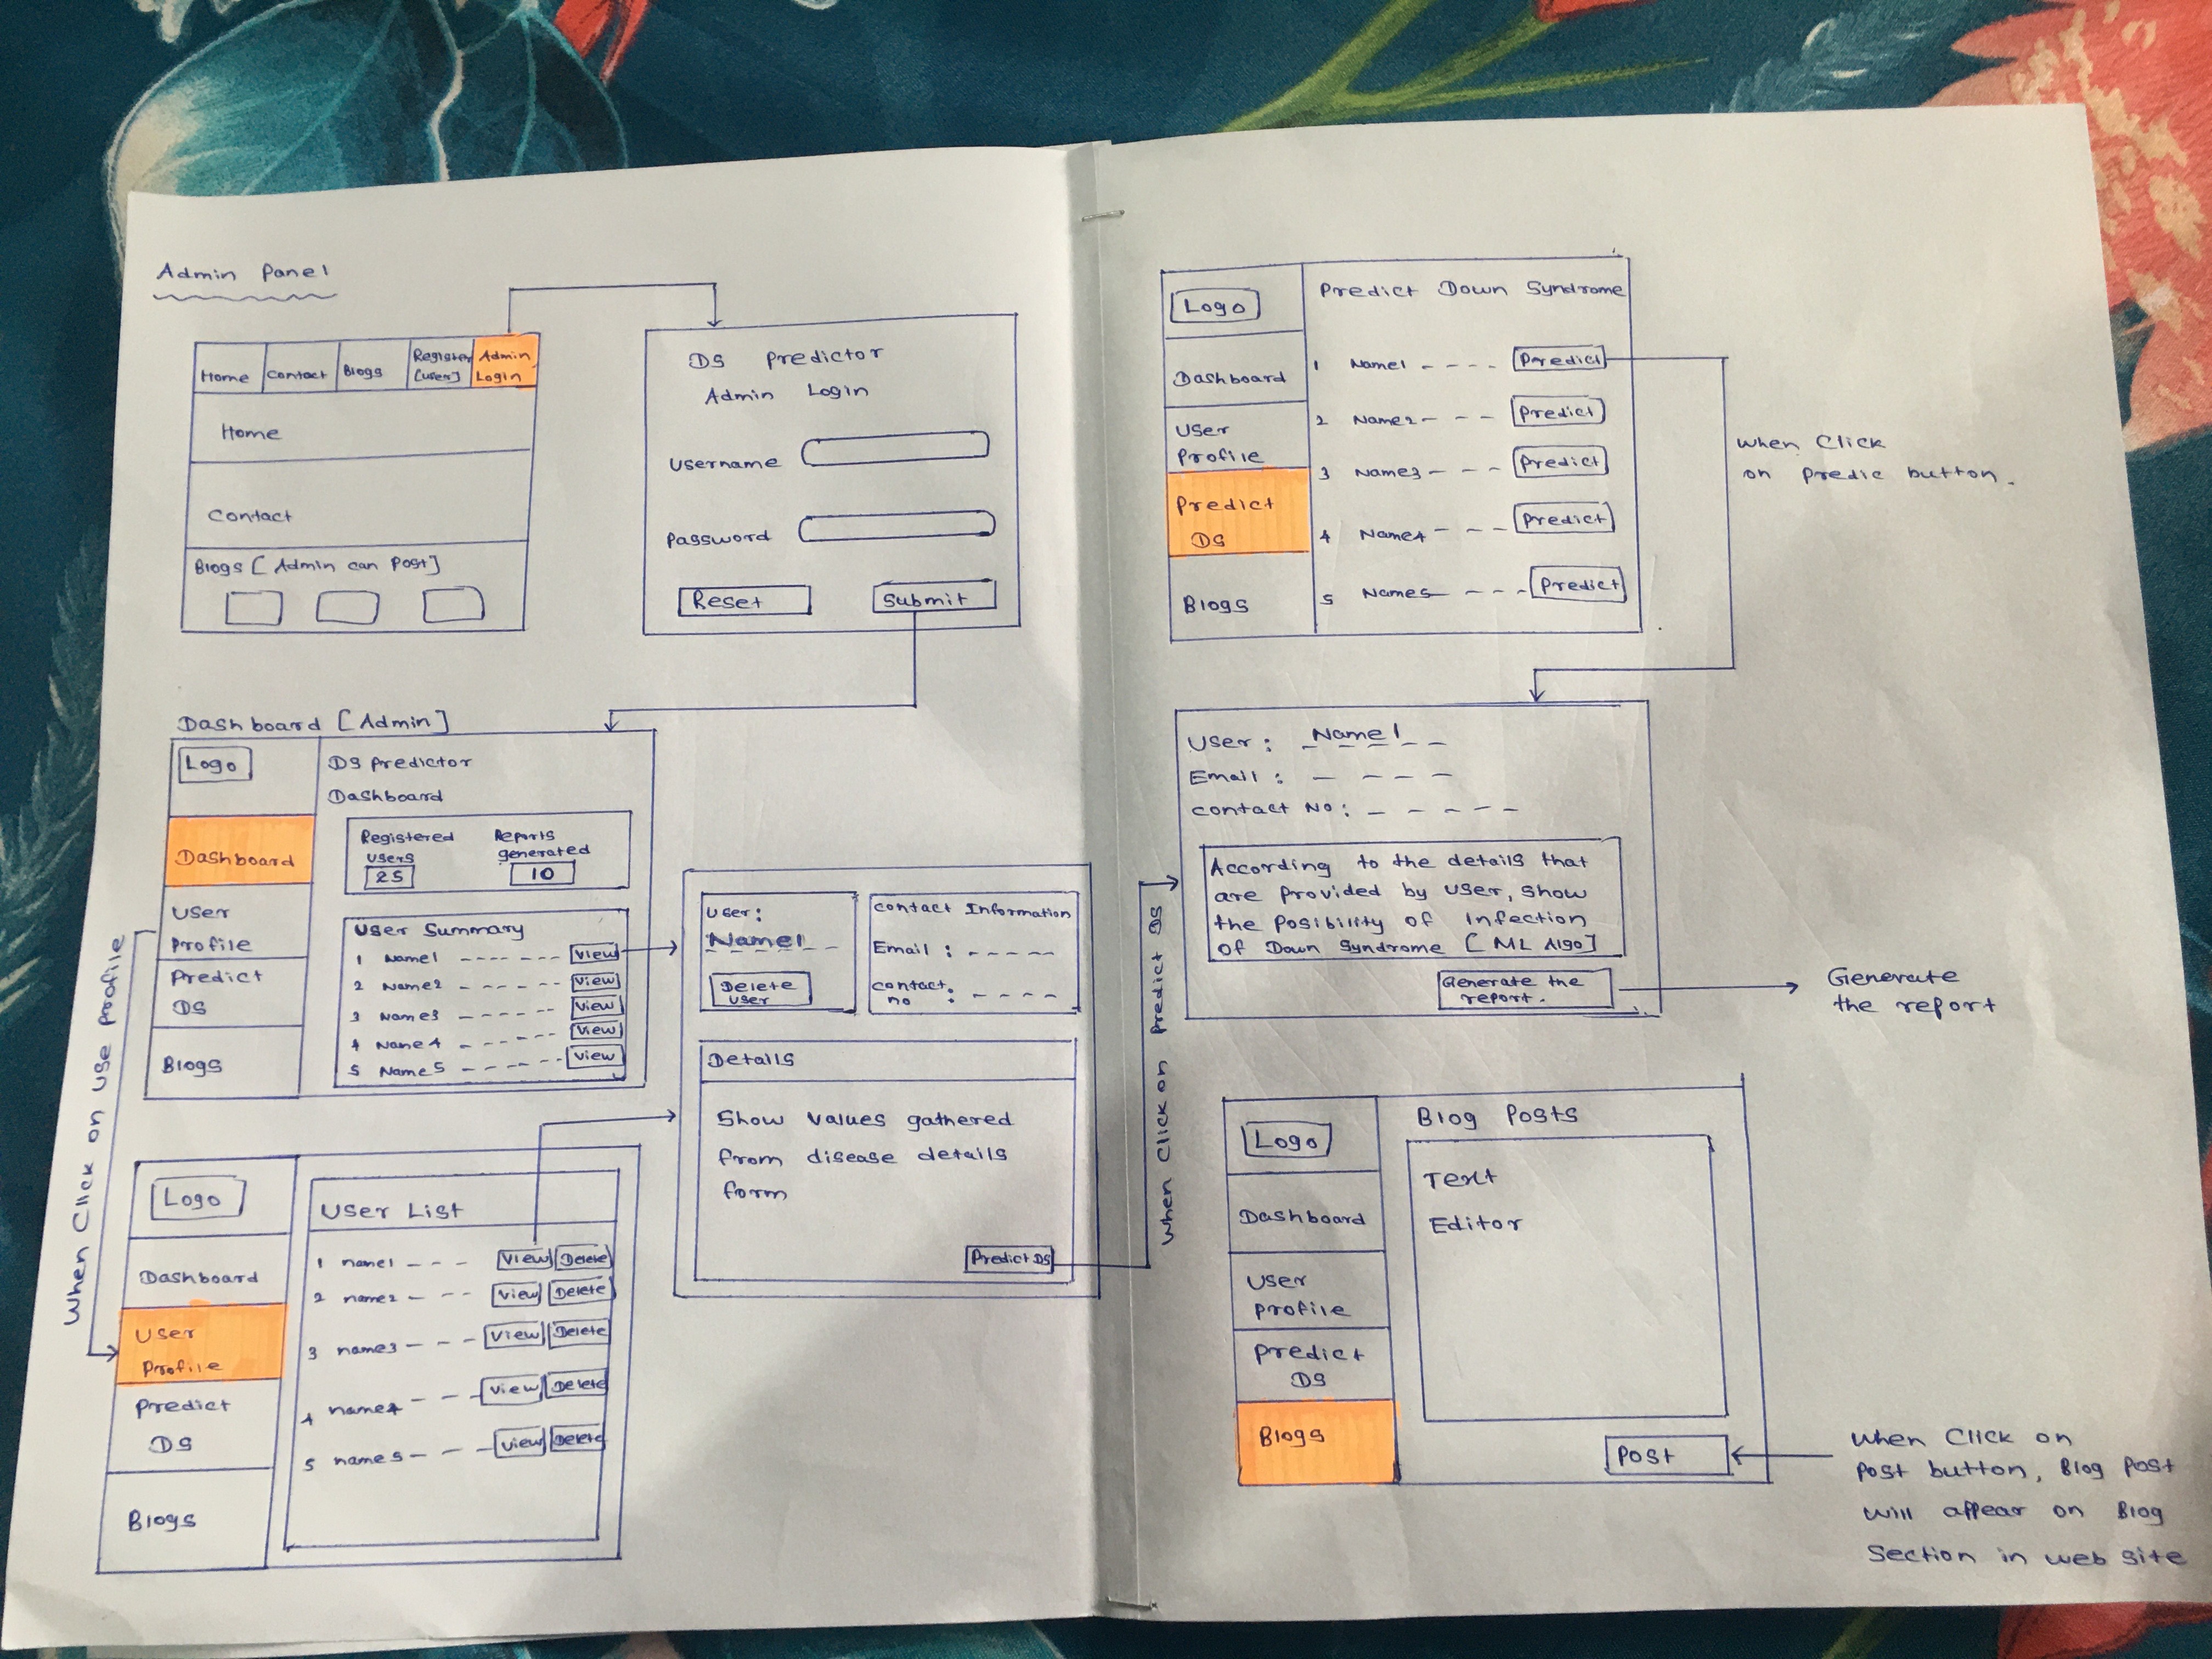 Admin Panel
Home
Contact
Blogs
Register
[user]
Admin
Login
Home
Contact
Blogs [Admin can Post]
DS Predictor
Admin Login
Username
Password
Reset
Submit
Dashboard [Admin]
Logo
Dashboard
User
Profile
Predict
DS
Blogs
DS Predictor
Dashboard
Registered
users
25
Reports
generated
10
User Summary
1 Name1 - - - - - - - View
2 Name2 - - - - - - View
3 Name3 - - - - - - View
4 Name4 - - - - - - View
5 Name5 - - - - - - View
When Click on Use Profile
Logo
Dashboard
User
Profile
Predict
DS
Blogs
User List
1 name1 - - - View Delete
2 name2 - - - View Delete
3 name3 - - - - View Delete
4 name4 - - - View Delete
5 name5 - - - View Delete
User:
Name1
Delete
user
Contact Information
Email : - - - - -
Contact
no : - - - -
Details
Show values gathered
from disease details
form
Predict DS
When Click on Predict DS
Logo
Dashboard
User
Profile
Predict
DS
Blogs
Predict Down Syndrome
1 Name1 - - - - Predict
2 Name2 - - - Predict
3 Name3 - - - Predict
4 Name4 - - - Predict
5 Name5 - - - Predict
When Click
on Predic button.
User : Name1
Email : - - - -
Contact No : - - - - -
According to the details that
are provided by user, show
the Posibility of Infection
of Down Syndrome [ML Algo]
Generate the
report.
Generate
the report
Logo
Dashboard
User
Profile
Predict
DS
Blogs
Blog Posts
Text
Editor
Post
When Click on
Post button, Blog Post
will appear on Blog
Section in web site